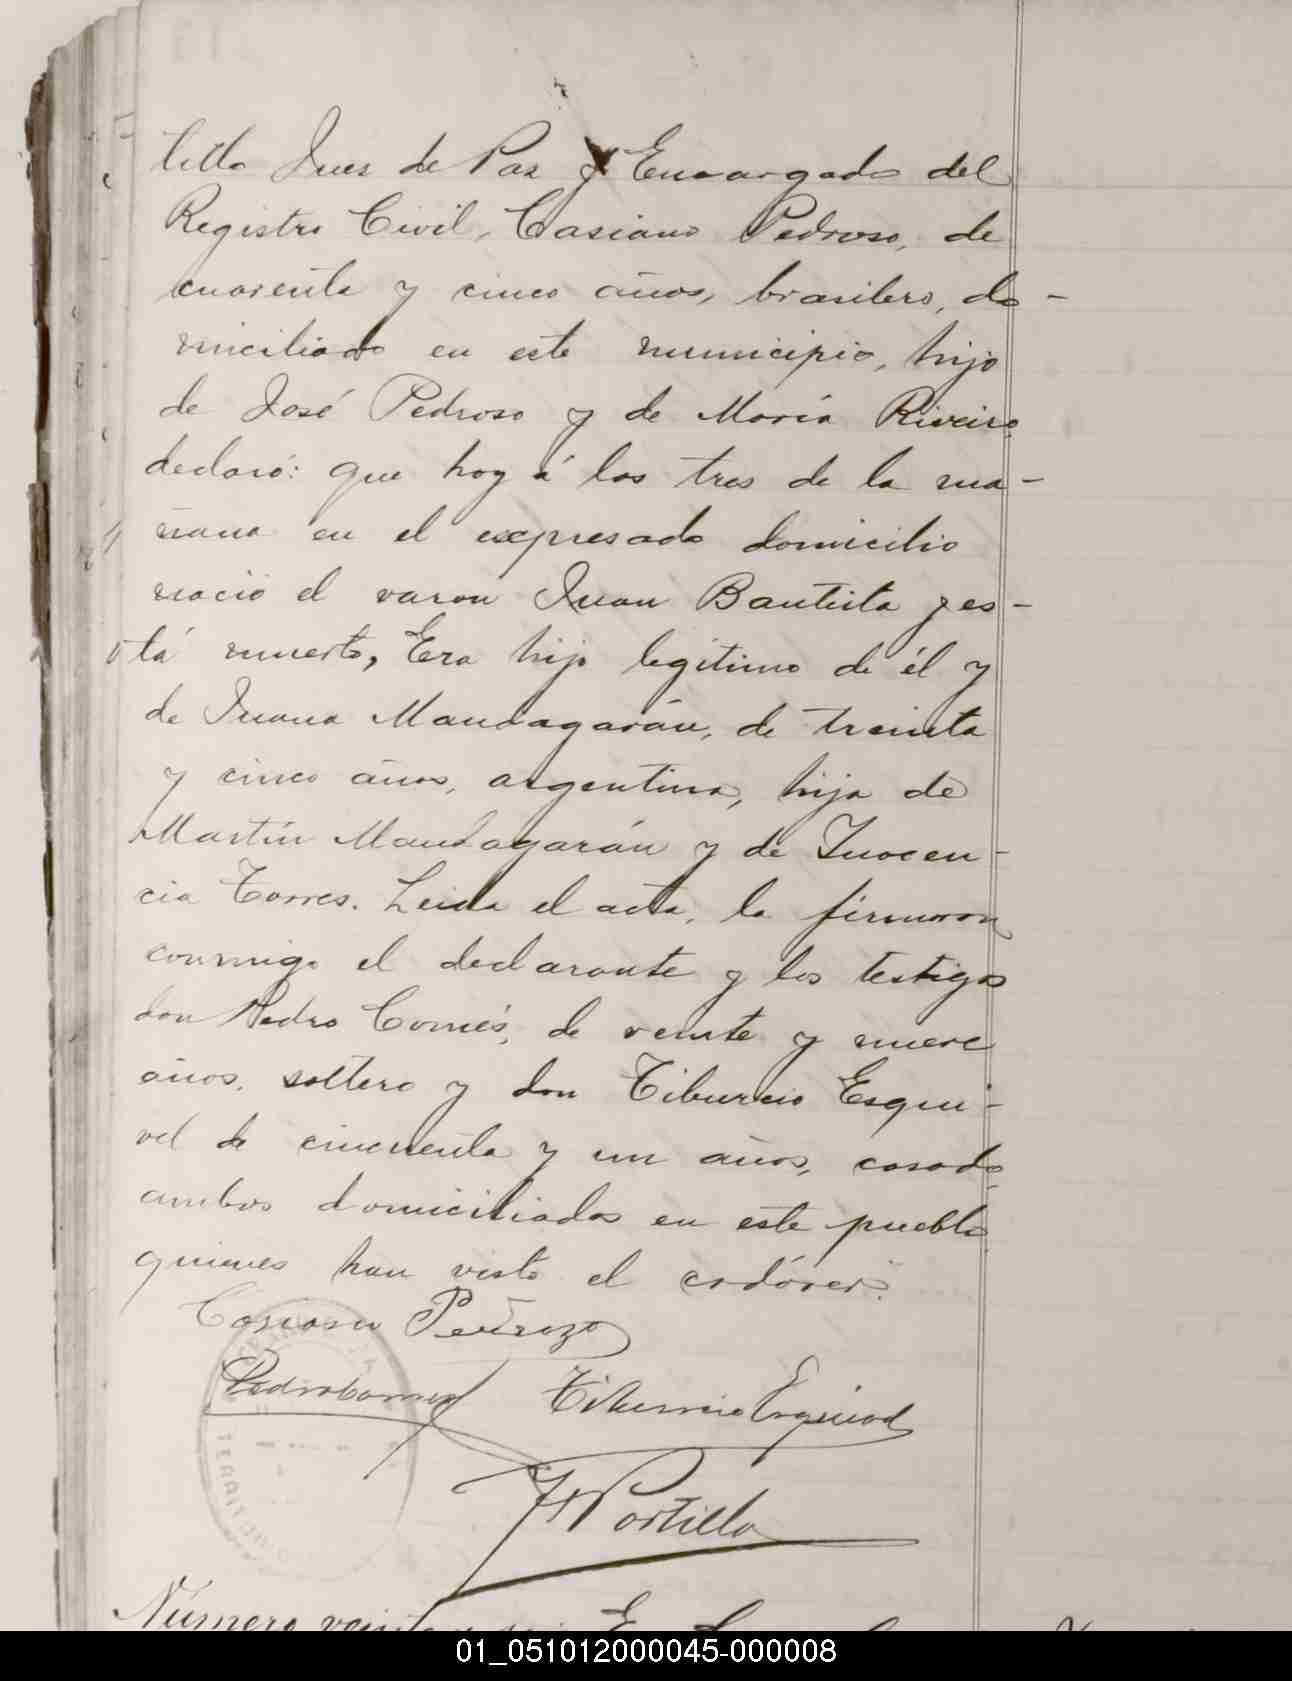 tillo Juez de Paz y Encargado del
Registro Civil, Casiano Pedroso, de
cuarenta y cinco años, brasilero, do-
miciliado en este municipio, hijo
de José Pedroso y de María Riveiro
declaró: que hoy á las tres de la ma-
ñana en el expresado domicilio
nació el varon Juan Bautista y es-
tá muerto, Era hijo legítimo de él y
de Juana Mandagarán, de treinta
y cinco años, argentina, hija de
Martín Mandagarán y de Inocen-
cia Torres. Leida el acta, la firmaron
conmigo el declarante y los testigos
don Pedro Comés, de veinte y nueve
años, soltero y don Tiburcio Esqui-
vel de cincuenta y un años, casado,
ambos domiciliados en este pueblo
quienes han visto el cadáver.
Casiano Pedrozo
Pedro Comes Tiburcio Esquivel
Portillo
TERRITORIO
Número veinte y
01_051012000045-000008